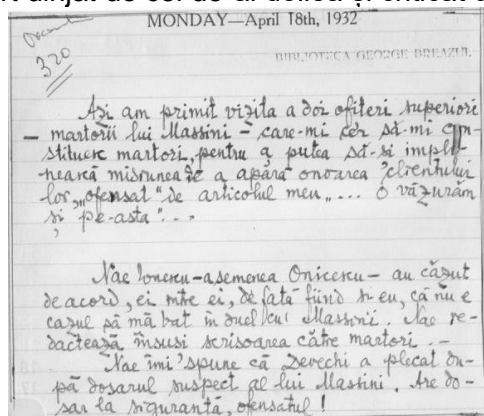 MONDAY—April 18th, 1932
320
BIBLIOTECA GEORGE BREAZUL
Azi am primit vizita a doi ofiteri superiori
– martorii lui Massini – care-mi cer să-mi con-
stituesc martori, pentru a putea să-si impli-
nească misiunea de a apăra onoarea "clientului
lor „ofensat" de articolul meu „... O văzurăm
și pe-asta"...
Nae Ionescu – asemenea Onicescu – au căzut
de acord, ei între ei, de față fiind si eu, că nu e
cazul să mă bat în duel cu Massini. Nae re-
dactează însusi scrisoarea către martori. –
Nae îmi spune că Devechi a plecat du-
pă dosarul suspect al lui Massini. Are do-
sar la siguranță, ofensatul!